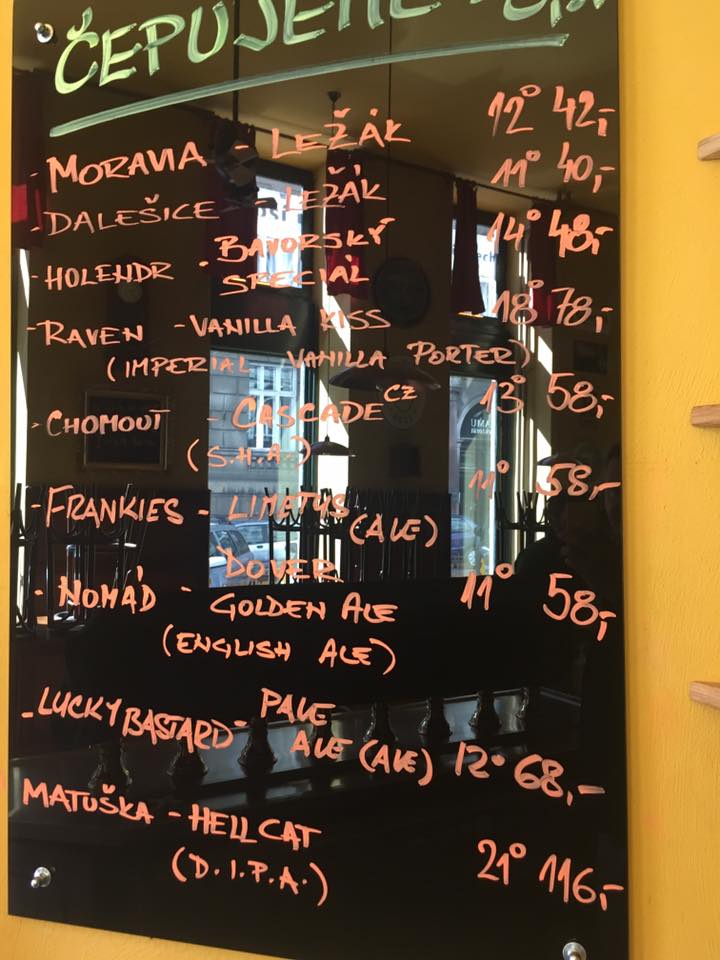 ČEPUJEME
- MORAVIA - LEŽÁK 12° 42,-
- DALEŠICE - LEŽÁK 11° 40,-
- HOLENDR - BAVORSKÝ 14° 48,-
SPECIÁL
- RAVEN - VANILLA KISS 18° 78,-
(IMPERIAL VANILLA PORTER)
- CHOMOUT - CASCADE CZ 13° 58,-
(S.H.A.)
- FRANKIES - LIMETUS 11° 58,-
(ALE)
- NOMÁD - DOVER 11° 58,-
GOLDEN ALE
(ENGLISH ALE)
- LUCKY BASTARD - PALE
ALE (ALE) 12° 68,-
MATUŠKA - HELLCAT
(D.I.P.A.) 21° 116,-